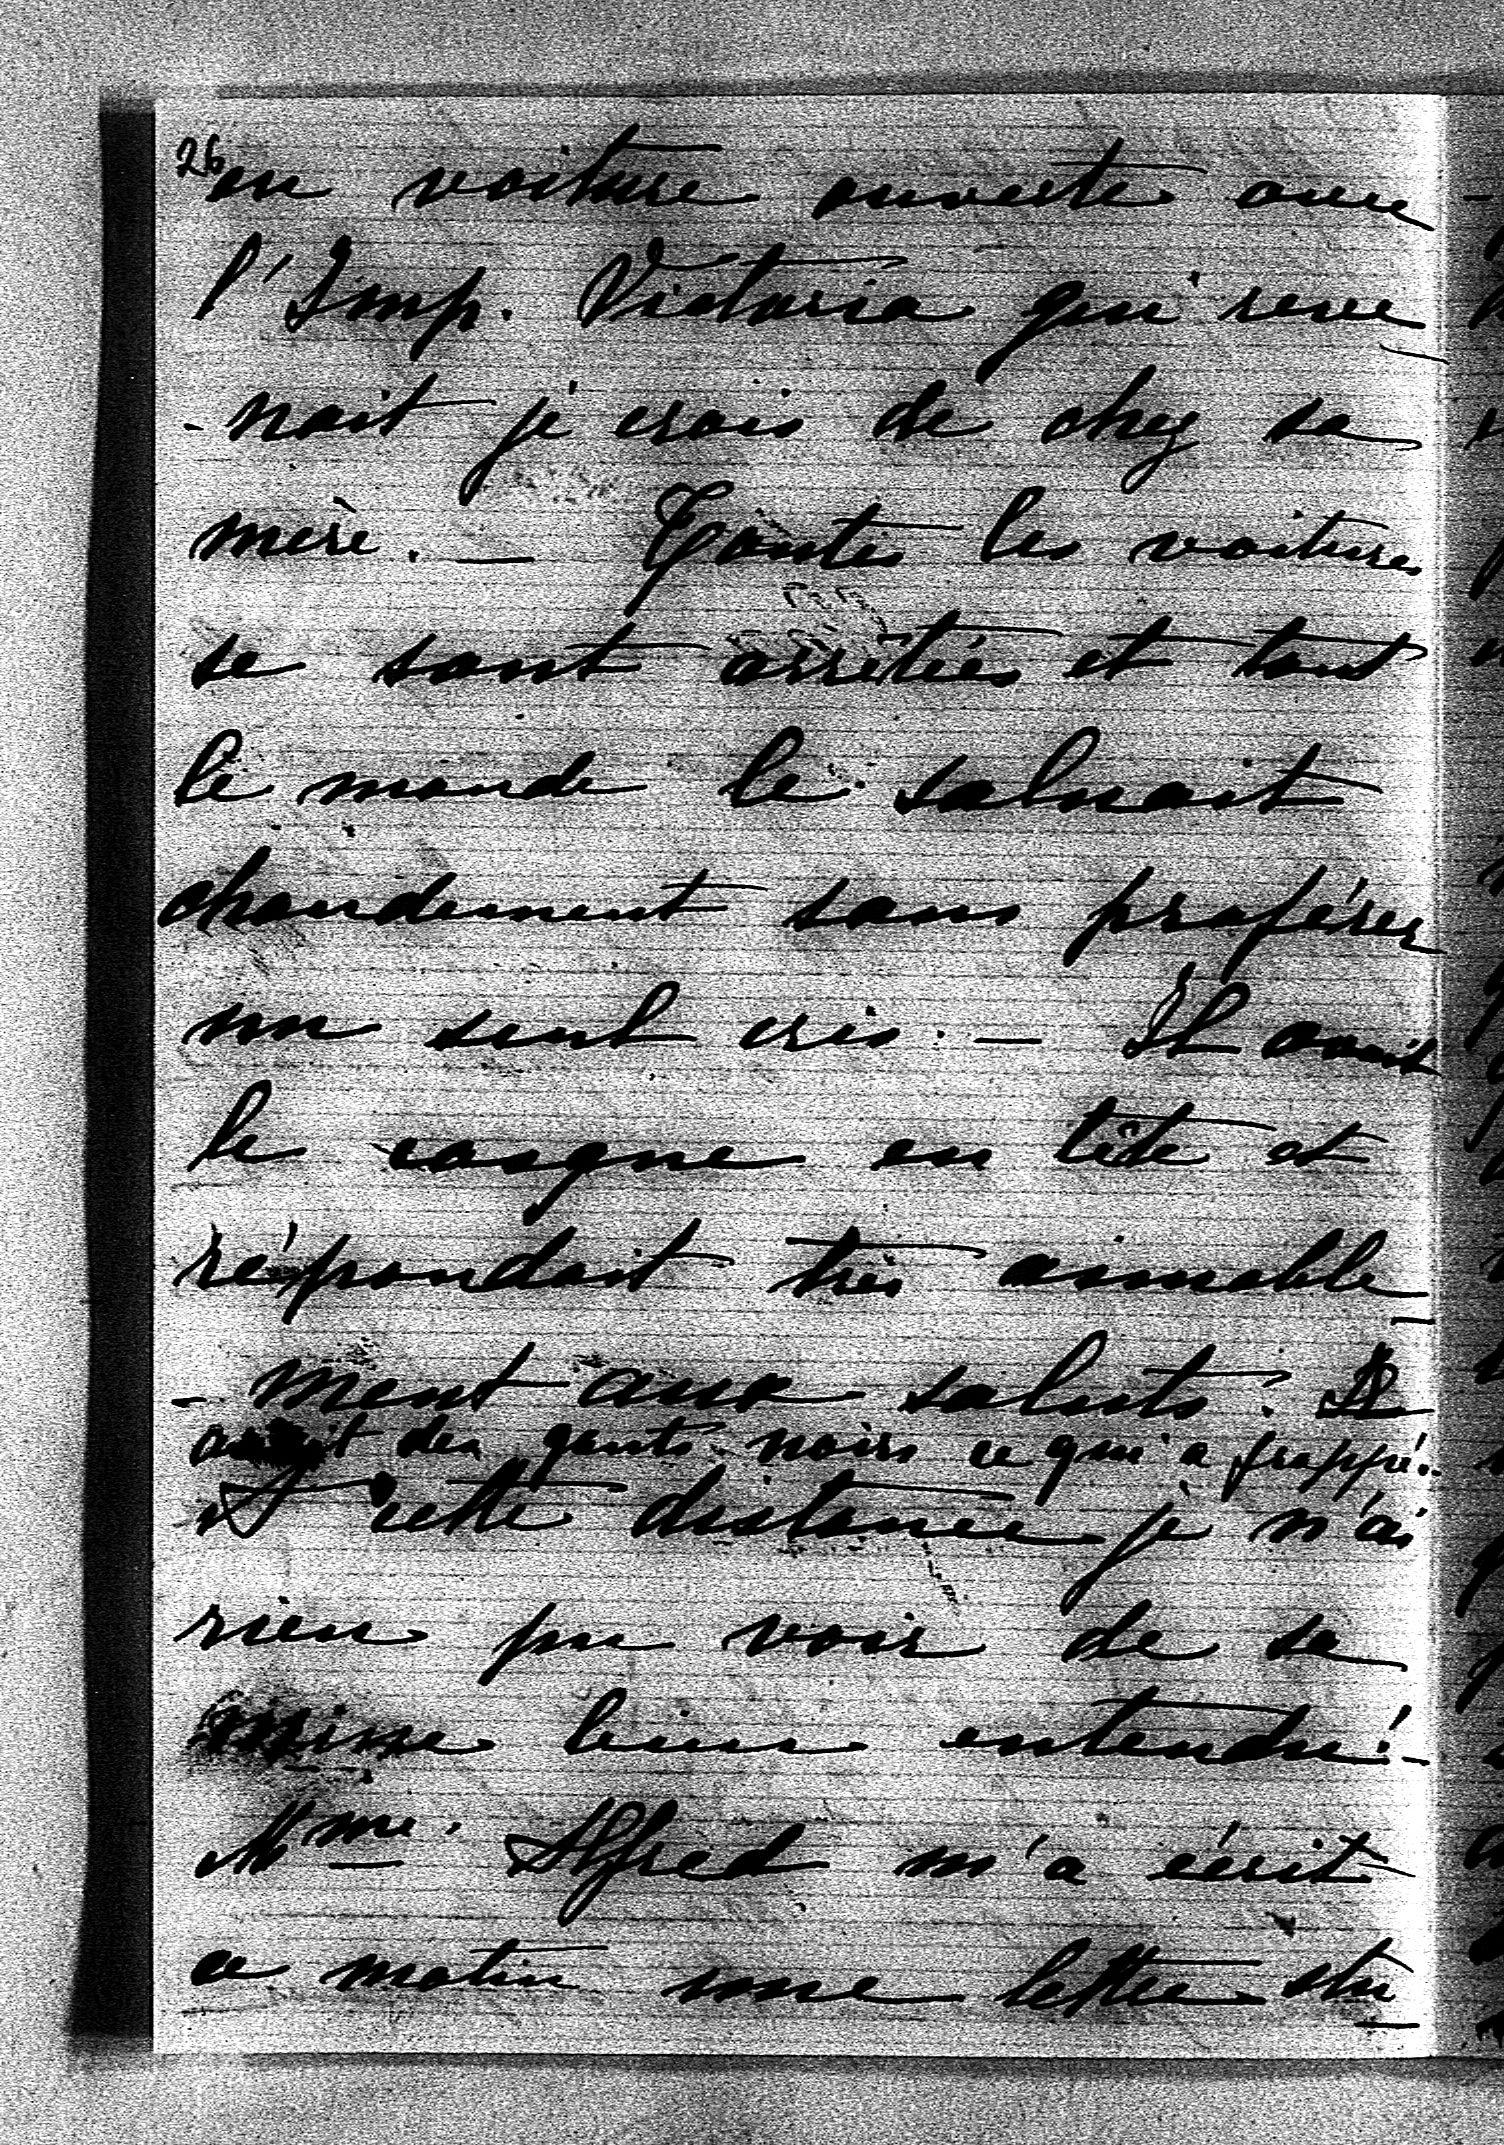 26
en voiture ouverte avec
l'Imp. Victoria qui reve
- nait je crois de chez sa
mère. — Toutes les voitures
se sont arrêtées et tout
le monde le saluait
chaudement sans proférer
un seul cris. — Il avait
le casque en tête et
répondait très aimable
- ment aux saluts. Il
avait des gants noirs ce qui a frappé.
A cette distance je n'ai
rien pu voir de sa
mine bien entendu! -
Mme. Alfred m'a écrit
ce matin une lettre stu
-